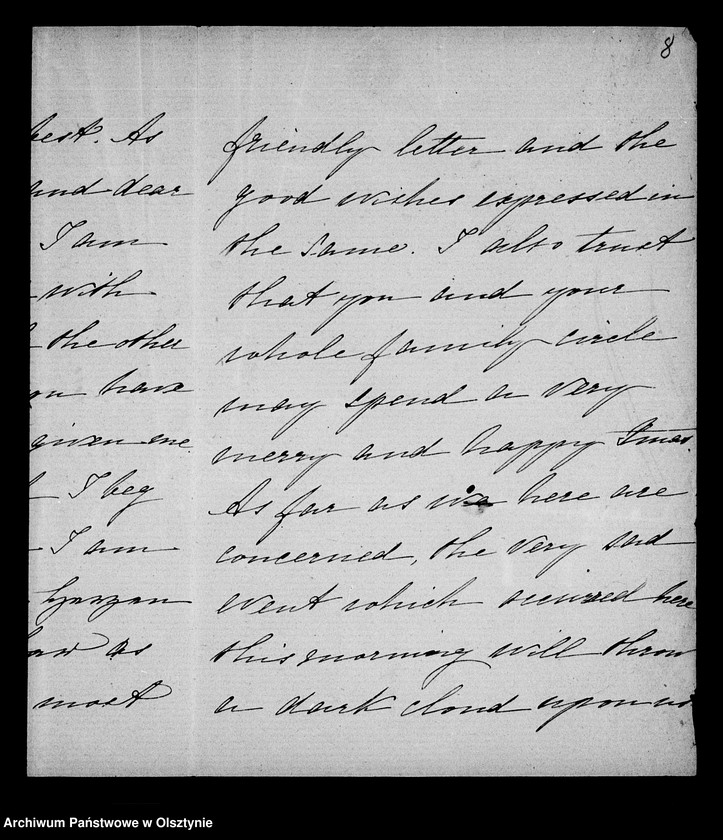 8
best. As
and dear
I am
with
the other
have
given me.
I beg
I am
Herzen
as
most
friendly letter and the
good wishes expressed in
the same. I also trust
that you and your
whole family circle
may spend a very
merry and happy Xmas.
As far as we here are
concerned, the very sad
event which occurred here
this morning will throw
a dark cloud upon us
Archiwum Państwowe w Olsztynie